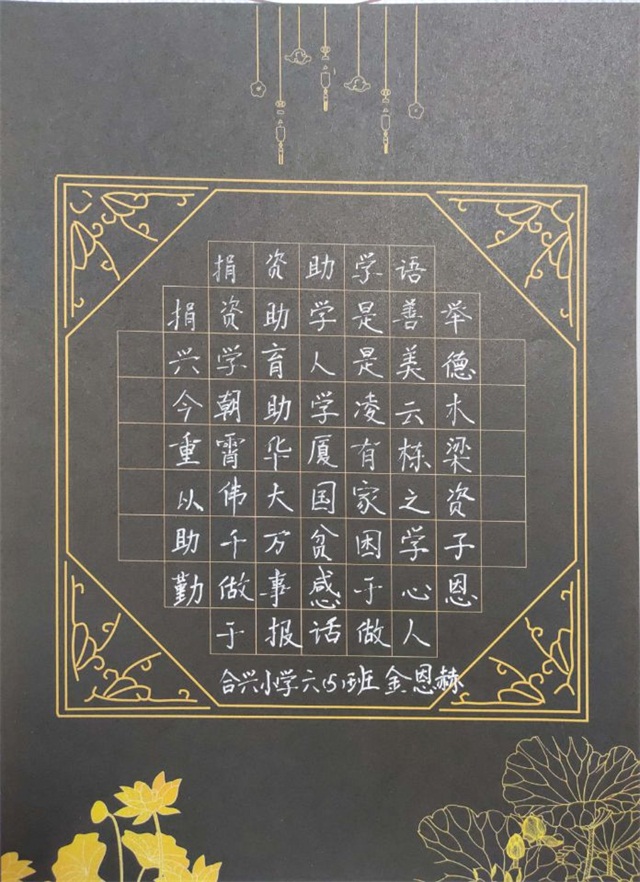 捐资助学语
捐资助学是善举
兴学育人是美德
今朝助学凌云木
重霄华厦有栋梁
以伟大国家之资
助千万贫困学子
勤做事感于心恩
于报话做人
合兴小学六(5)班 金恩赫